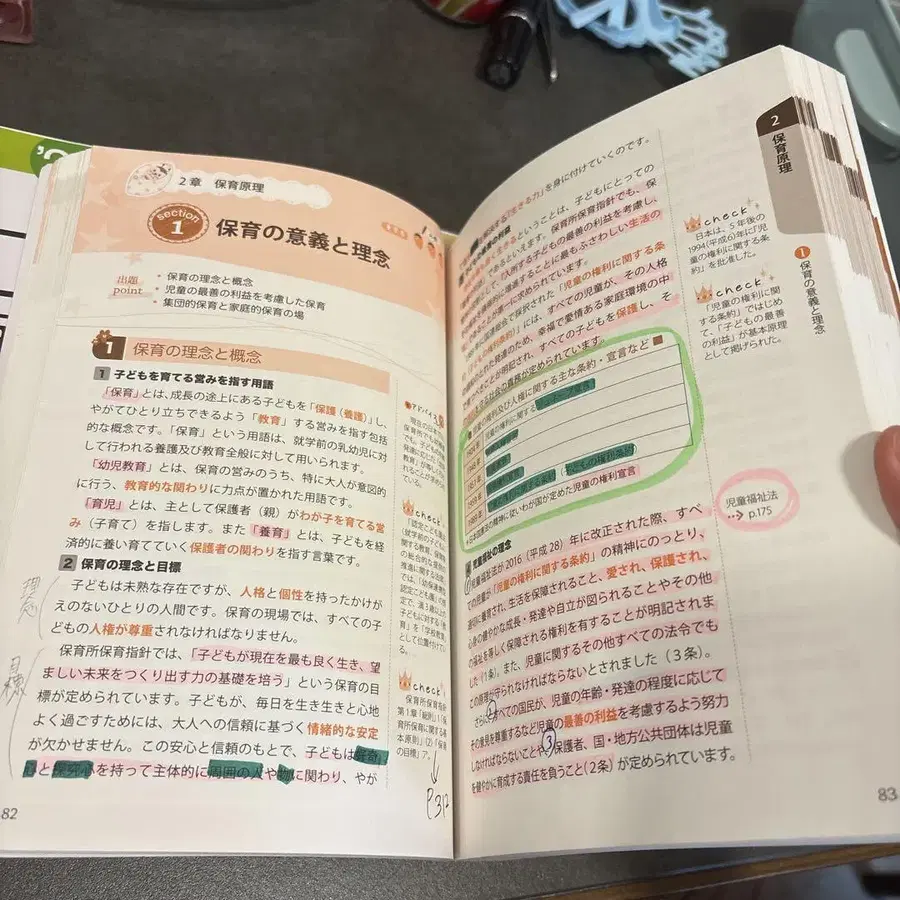 2章 保育原理
section
1
保育の意義と理念
出題
point
・保育の理念と概念
・児童の最善の利益を考慮した保育
・集団的保育と家庭的保育の場
1 保育の理念と概念
1 子どもを育てる営みを指す用語
「保育」とは、成長の途上にある子どもを「保護（養護）」し、
やがてひとり立ちできるよう「教育」する営みを指す包括
的な概念です。「保育」という用語は、就学前の乳幼児に対
して行われる養護及び教育全般に対して用いられます。
「幼児教育」とは、保育の営みのうち、特に大人が意図的
に行う、教育的な関わりに力点が置かれた用語です。
「育児」とは、主として保護者（親）がわが子を育てる営
み（子育て）を指します。また「養育」とは、子どもを経
済的に養い育てていく保護者の関わりを指す言葉です。
2 保育の理念と目標
子どもは未熟な存在ですが、人格と個性を持ったかけが
えのないひとりの人間です。保育の現場では、すべての子
どもの人権が尊重されなければなりません。
保育所保育指針では、「子どもが現在を最も良く生き、望
ましい未来をつくり出す力の基礎を培う」という保育の目
標が定められています。子どもが、毎日を生き生きと心地
よく過ごすためには、大人への信頼に基づく情緒的な安定
が欠かせません。この安心と信頼のもとで、子どもは好奇
心と探究心を持って主体的に周囲の人や物に関わり、やが
理念
目標
アドバイス
check
check
保育所保育指針
第1章「総則」1「保
育所保育に関する基
本原則」(2)「保育
の目標」ア。
P312
82
生きる力」を身に付けていくのです。
ということは、子どもにとっての
であるといえます。保育所保育指針でも、保
「入所する子どもの最善の利益を考慮し、
に増進することに最もふさわしい生活の
が第一に求められています。
総会で採択された「児童の権利に関する条
には、すべての児童が、その人格
発達のため、幸福で愛情ある家庭環境の中
が明記され、すべての子どもを保護し、そ
社会の責務が定められています。
権利及び人権に関する主な条約・宣言など
児童の権利に関する
子どもの権利条約
日本国憲法の精神に従いわが国が定めた児童の権利宣言
児童福祉の理念
児童福祉法が2016（平成28）年に改正された際、すべ
ての児童が「児童の権利に関する条約」の精神にのっとり、
適切に養育され、生活を保障されること、愛され、保護され、
心身の健やかな成長・発達や自立が図られることやその他
の福祉を等しく保障される権利を有することが明記されま
した（1条）。また、児童に関するその他すべての法令でも
この原理が守られなければならないとされました（3条）。
さらに、すべての国民が、児童の年齢・発達の程度に応じて
その意見を尊重するなど児童の最善の利益を考慮するよう努力
しなければならないことや、③保護者、国・地方公共団体は児童
を健やかに育成する責任を負うこと（2条）が定められています。
check
日本は、5年後の
1994(平成6)年に「児
童の権利に関する条
約」を批准した。
check
「児童の権利に関
する条約」ではじめ
て、「子どもの最善
の利益」が基本原理
として掲げられた。
児童福祉法
p.175
2
保育原理
1
保育の意義と理念
83